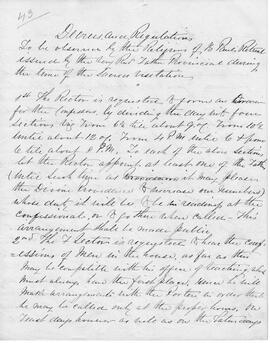 43
Decrees and Regulations
To be observed by the Religious of St Paul's Retreat
issued by the Very Revd Father Provincial during
the time of the Sacred visitation
1st The Rector is requested to form an
for the Confessors, by dividing the day into four
sections say from 6 till about 9 oc. From 10
until about 12 oc. From 4 P.M. until 6 & from
6 till about 8 P.M. To each of the above sections
let the Rector appoint at least one of the Fathers
(until such time as may please
the Divine Providence to increase our numbers)
whose duty it will be to be in readiness at the
Confessional, or to go there when called. This
arrangement shall be made public
2nd The Lectors is requested to hear the conf-
essions of Men in the house, as far as this
may be compatible with his office of teaching, which
must always have the first place. Hence he will
make arrangements with the Porter in order that
he may be called only at the proper hours. On
feast days however as well as on the